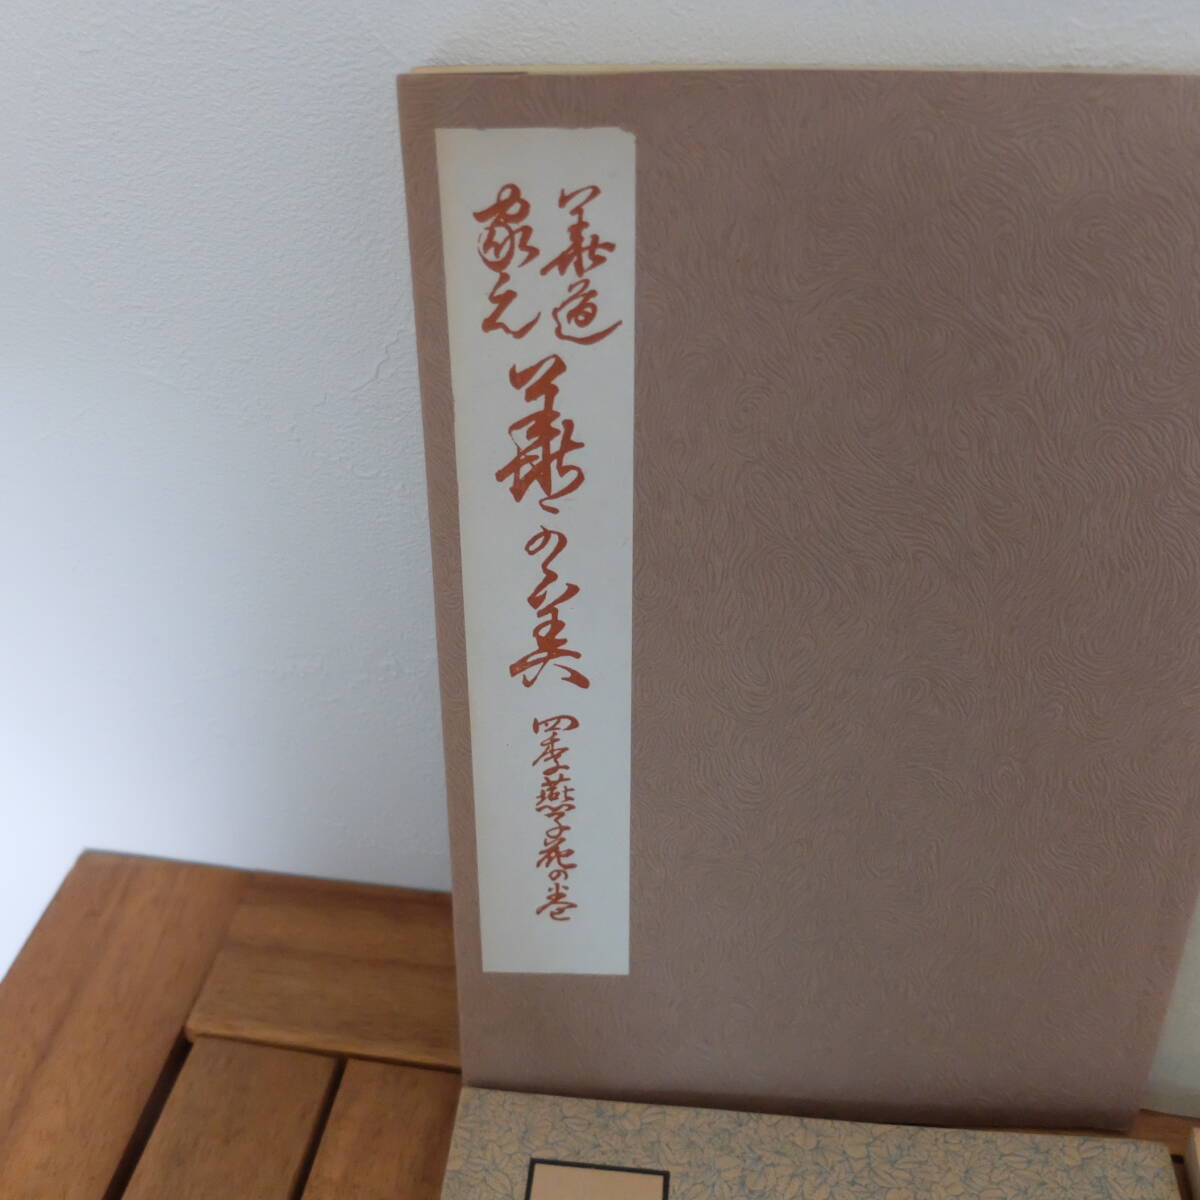 華道
家元
華の美
四季燕子花の巻